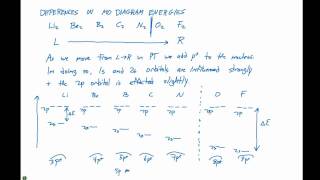 DIFFERENCES IN MO DIAGRAM ENERGIES
Li₂ Be₂ B₂ C₂ N₂ | O₂ F₂
L R
As we move from L→R in PT we add p⁺ to the nucleus.
In doing so, 1s and 2s orbitals are influenced strongly
+ the 2p orbital is effected slightly.
Li Be B C N O F
2p 2p 2p 2p 2p
ΔE ΔE
2s 2s 2s 2s 2s 2s 2s
3p⁺ 4p⁺ 5p⁺ 6p⁺ 7p⁺ 8p⁺ 9p⁺